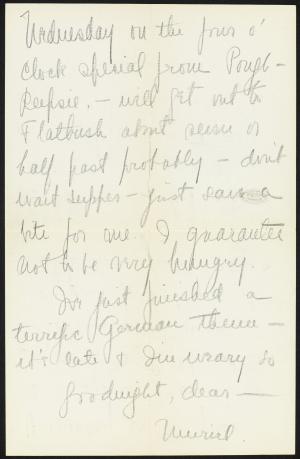 Wednesday on the four o'
clock special from Pough-
keepsie. - will get out to
Flatbush about seven or
half past probably - don't
wait supper - just save a
bite for me. I guarantee
not to be very hungry.
I've just finished a
terrific German theme -
it's late & I'm weary so
goodnight, dear -
Muriel.